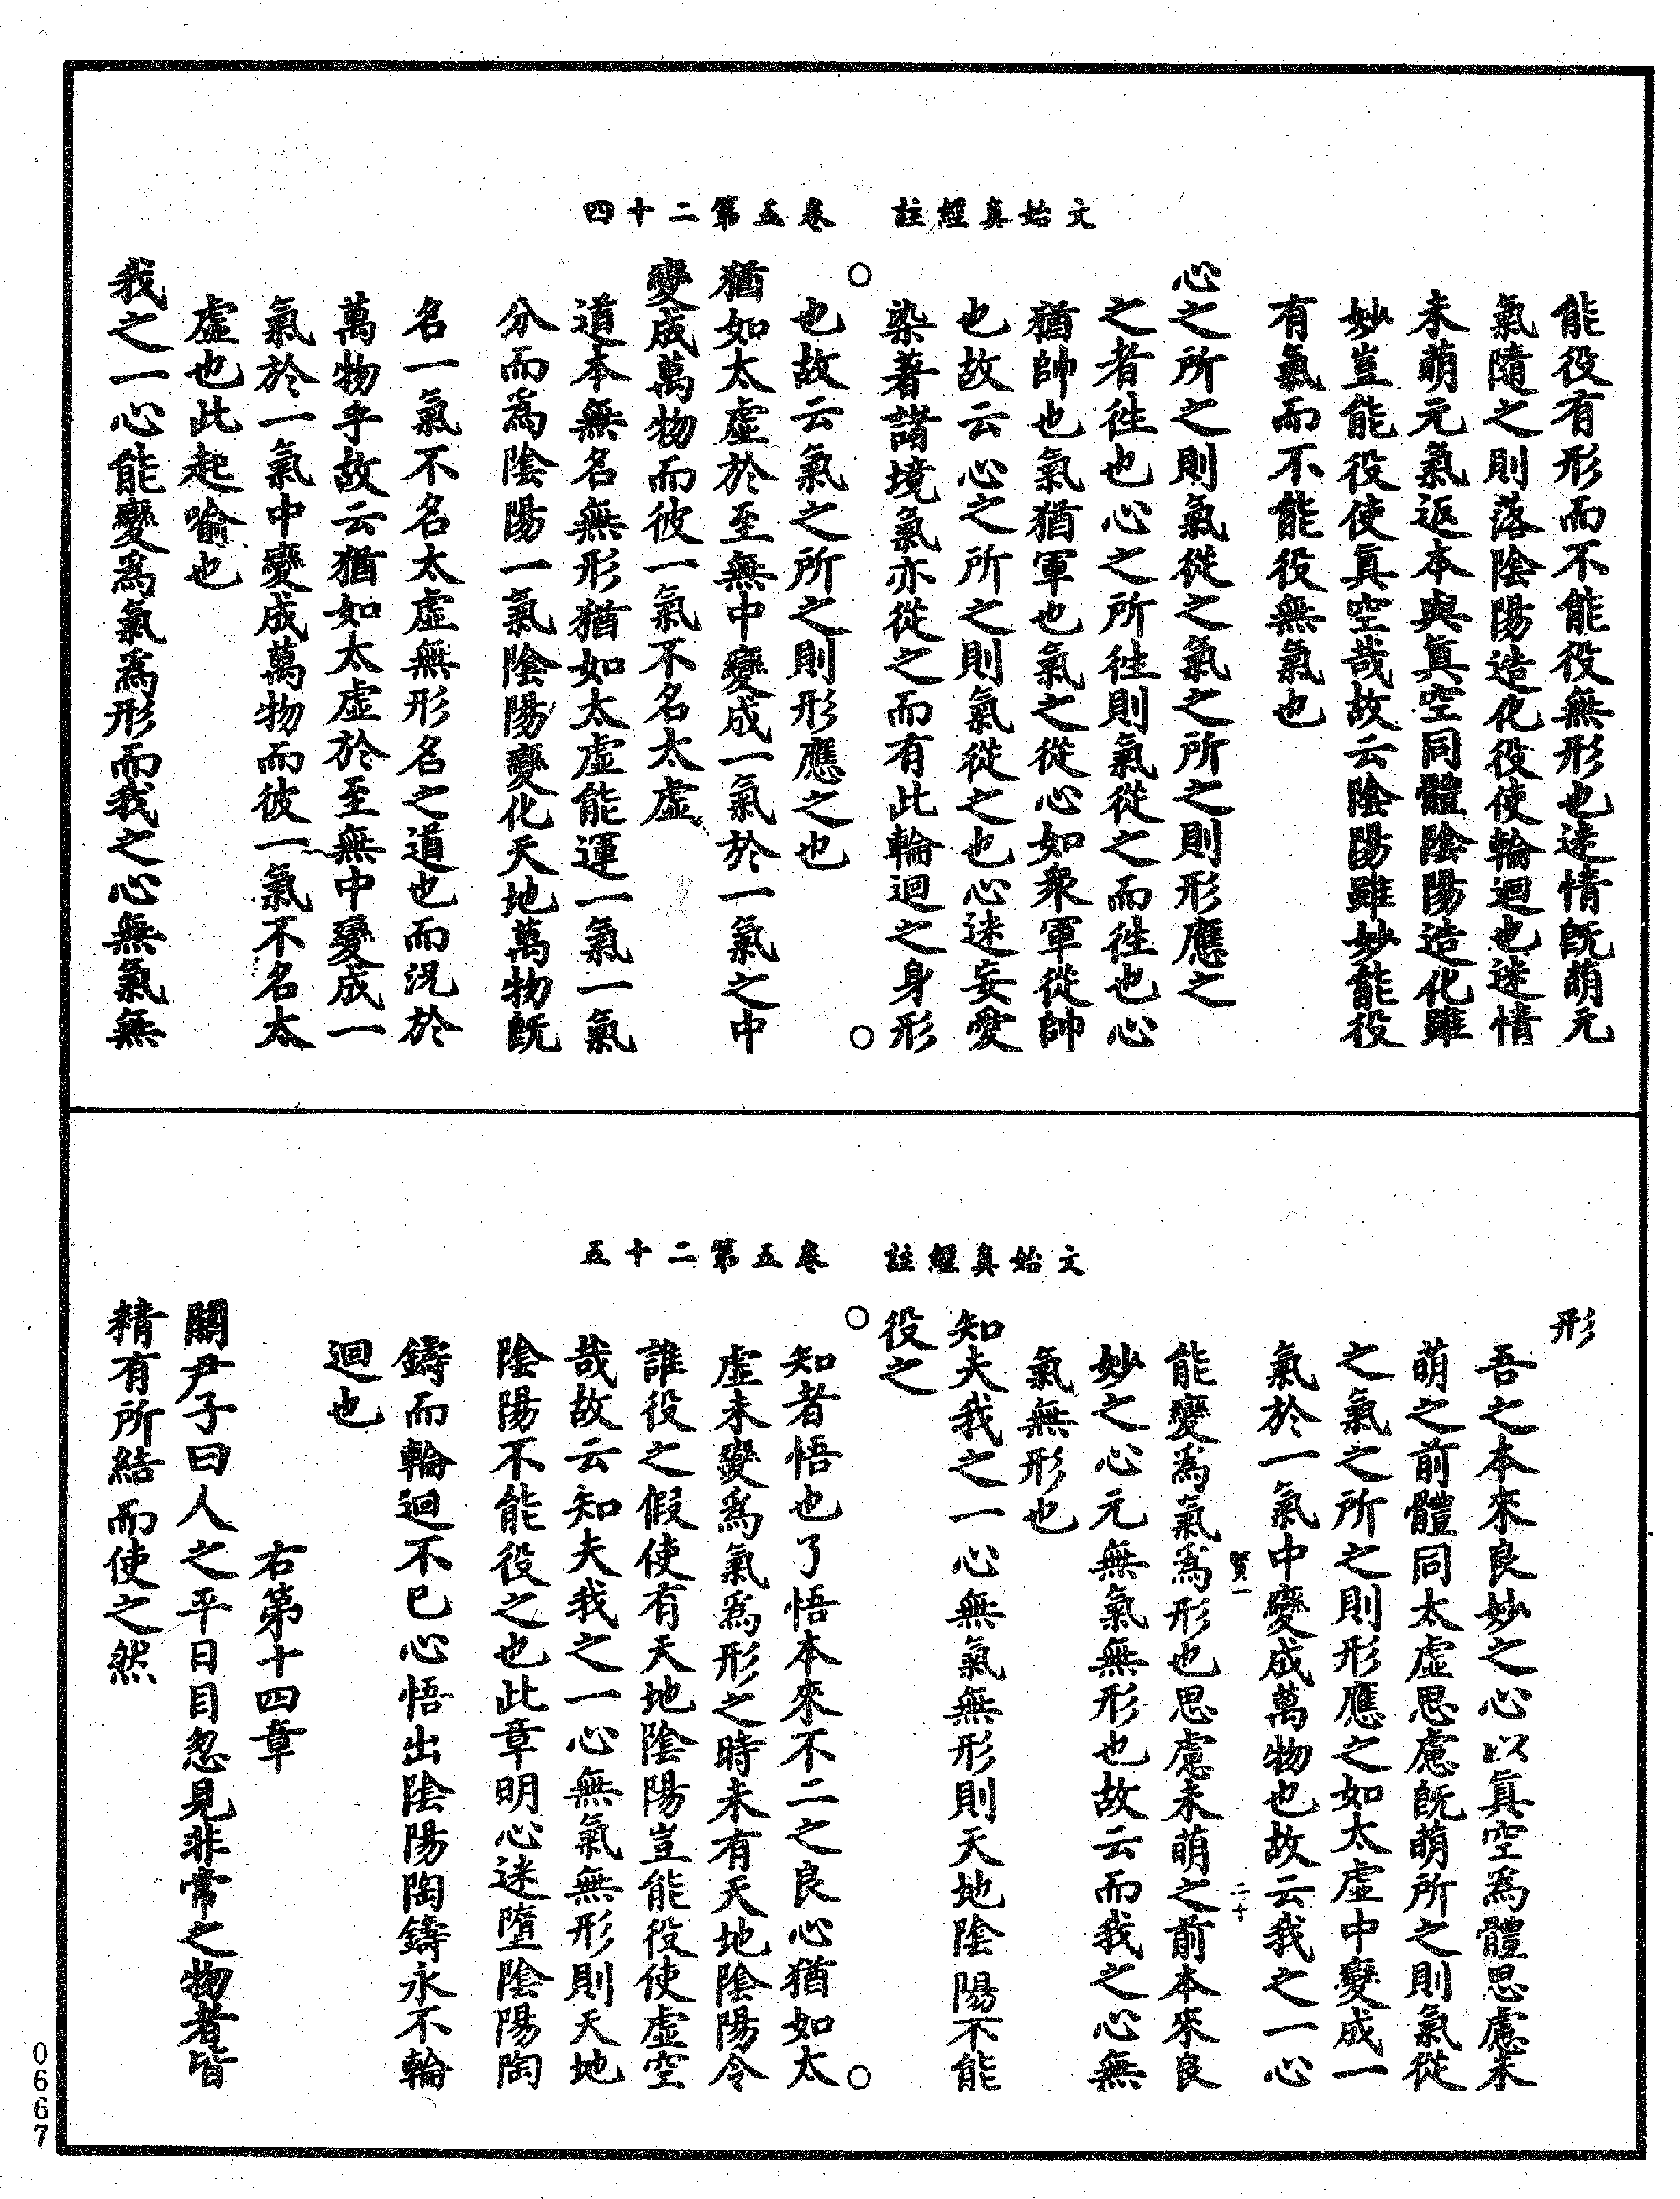 文始真經註　卷五第二十四
能役有形而不能役無形也迷情既萌元
氣隨之則落陰陽造化役使輪迴也迷情
未萌元氣返本與真空同體陰陽造化雖
妙豈能役使真空哉故云陰陽雖妙能役
有氣而不能役無氣也
心之所之則氣從之氣之所之則形應之
之者往也心之所往則氣從之而往也心
猶帥也氣猶軍也氣之從心如衆軍從帥
也故云心之所之則氣從之也心迷妄愛
染著諸境氣亦從之而有此輪迴之身形
○　○
也故云氣之所之則形應之也
猶如太虛於至無中變成一氣於一氣之中
變成萬物而彼一氣不名太虛
道本無名無形猶如太虛能運一氣一氣
分而為陰陽一氣陰陽變化天地萬物既
名一氣不名太虛無形名之道也而況於
萬物乎故云猶如太虛於至無中變成一
氣於一氣中變成萬物而彼一氣不名太
虛也此起喻也
我之一心能變為氣為形而我之心無氣無
文始真經註　卷五第二十五
形
吾之本來良妙之心以真空為體思慮未
萌之前體同太虛思慮既萌所之則氣從
之氣之所之則形應之如太虛中變成一
氣於一氣中變成萬物也故云我之一心
賢一　二十
能變為氣為形也思慮未萌之前本來良
妙之心元無氣無形也故云而我之心無
氣無形也
知夫我之一心無氣無形則天地陰陽不能
役之
○　○
知者悟也了悟本來不二之良心猶如太
虛未變為氣為形之時未有天地陰陽令
誰役之假使有天地陰陽豈能役使虛空
哉故云知夫我之一心無氣無形則天地
陰陽不能役之也此章明心迷墮陰陽陶
鑄而輪迴不已心悟出陰陽陶鑄永不輪
迴也
右第十四章
關尹子曰人之平日目忽見非常之物者皆
精有所結而使之然
0667